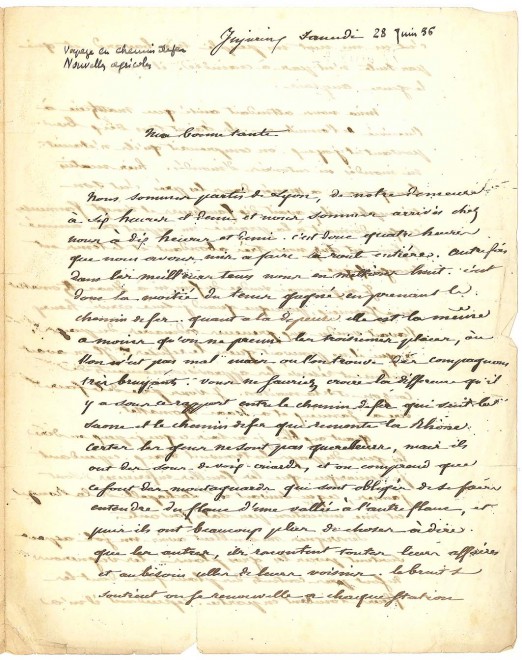 Jujurieux Samedi 28 Juin 56
Voyage en chemin de fer
Nouvelles agricoles
Ma bonne tante
Nous sommes partis de Lyon, de notre demeure
à six heures et demi et nous sommes arrivés chez
nous à dix heures et demi. c'est donc quatre heures
que nous avons mis a faire la route entière. autrefois
dans les meilleurs tems nous en mettions huit. c'est
donc la moitié du tems gagné en prenant le
chemin de fer. quant a la dépense elle est la même
a moins qu'on ne prenne les troisièmes places, ou
l'on n'est pas mal mais ou l'on trouve des compagnons
très bruyants. vous ne sauriez croire la différence qu'il
y a sous ce rapport entre le chemin de fer qui suit la
saone et le chemin de fer qui remonte la Rhône.
Certes les gens ne sont pas querelleurs mais ils
ont des sons de voix criards, et on comprend que
ce sont des montagnards qui sont obligés de se faire
entendre du flanc d'une vallée à l'autre flanc, et
puis ils ont beaucoup plus de choses à dire
que les autres, ils racontent toutes leurs affaires
et au besoin celles de leurs voisins. le bruit s
soutient ou se renouvelle a chaque station